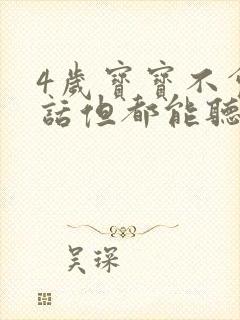 4歲寶寶不
話但都能聽
吴琛